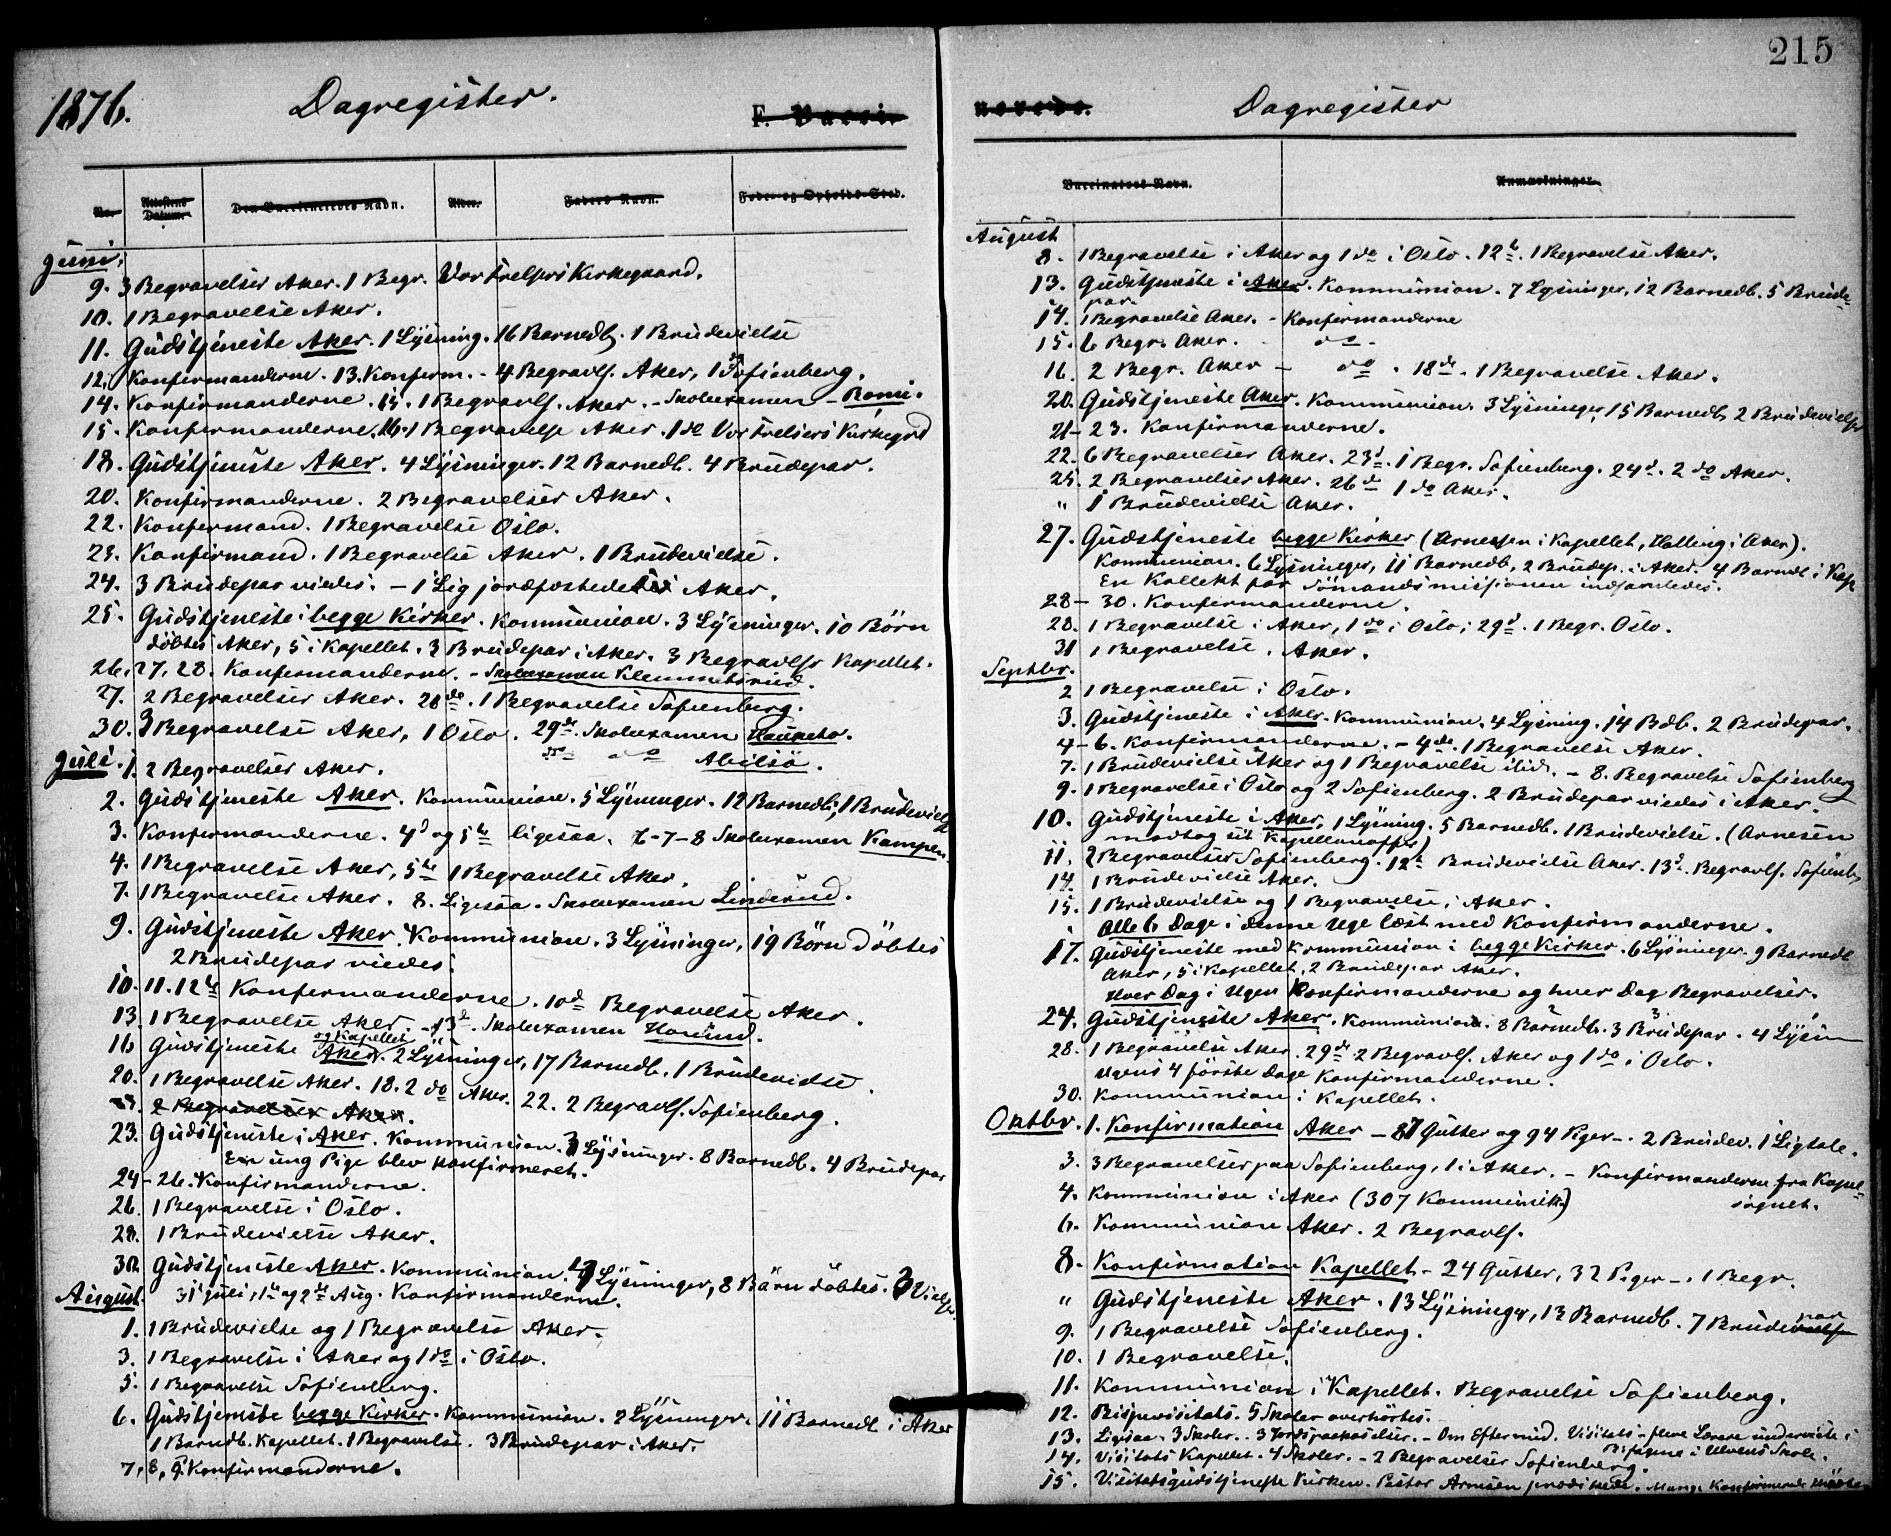 1876.
Dagregister.
F. Vacci-
No. Attestens Datum. Den Vaccineredes Navn. Alder. Faders Navn. Føde- og Opholds-Sted.
Juni.
9. 3 Begravelser Aker. 1 Begr. Vor Frelsers Kirkegaard.
10. 1 Begravelse Aker.
11. Gudstjeneste Aker. 1 Lysning. 16 Barnedb. 1 Brudevielse
12. Konfirmanderne. 13. Konferm. - 4 Begravls. Aker, 1 Sofienberg.
14. Konfirmanderne. 1 Begravls. Aker. - Skolexamen - Bomi.
15. Konfirmanderne. 16. 1 Begravelse Aker. 1 do Vor Frelsers Kirkegrd
18. Gudstjeneste Aker. 4 Lysninger. 12 Barnedb. 4 Brudepar.
20. Konfirmanderne. 2 Begravelser Aker.
22. Konfermand. 1 Begravelse Oslo.
23. Konfirmand. 1 Begravelse Aker. 1 Brudevielse.
24. 3 Brudepar viedes. - 1 Lig jordfæstedes i Aker.
25. Gudstjeneste i begge Kirker. Kommunion. 3 Lysninger. 10 Børn
døbtes i Aker, 5 i Kapellet. 3 Brudepar i Aker. 3 Begravlsr Kapellet.
26, 27, 28. Konfermanderne. - Skolexamen Klemmetsrud.
27. 2 Begravelser Aker. 28de. 1 Begravelse Sofienberg.
30. 3 Begravelse Aker, 1 Oslo. 29de Skolexamen Hauketo.
Juli. 1. 2 Begravelser Aker. do Abilsø.
2. Gudstjeneste Aker. Kommunion. 5 Lysninger. 12 Barnedb, 1 Brudeviels
3. Konfermanderne. 4d og 5te ligesaa. 6-7-8 Skolexamen Kampen.
4. 1 Begravelse Aker, 5te 1 Begravelse Aker.
7. 1 Begravelse Aker. 8. Ligesaa. Skolexamen Linderud.
9. Gudstjeneste Aker. Kommunion. 3 Lysninger, 19 Børn døbtes
2 Brudepar viedes.
10. 11. 12te Konfermanderne. 10d Begravelse Aker.
13 1 Begravelse Aker. - 13d. Skolexamen Horund.
16 Gudstjeneste Aker og Kapellet. 2 Lysninger, 17 Barnedb. 1 Brudevielse.
20. 1 Begravelse Aker. 18. 2 do Aker. 22. 2 Begravls. Sofienberg.
2 Begravelser Aker.
23. Gudstjeneste i Aker. Kommunion. Lysninger. 8 Barnedb. 4 Brudepar
En ung Pige blev konfirmeret.
24-26. Konfirmanderne.
26. 1 Begravelse i Oslo.
28. 1 Brudevielse Aker.
30. Gudstjeneste Aker. Kommunion. Lysninger, 8 Børn døbtes. 3 Viels.
August. 31 Juli, 1te og 2de Aug. Konfirmanderne.
1. 1 Brudevielse og 1 Begravelse Aker.
3. 1 Begravelse i Aker og 1 do i Oslo.
5. 1 Begravelse Sofienberg.
6. Gudstjeneste begge Kirker. Kommunion. 2 Lysninger. 11 Barnedb i Aker
1 Barnedb. Kapellet. 1 Begravelse. 3 Brudepar i Aker.
7, 8, 9. Konfirmanderne.
215
nerede.
Dagregister
Vaccinators Navn. Anmærkninger.
August
8. 1 Begravelse i Aker og 1 do i Oslo. 12te. 1 Begravelse Aker.
13. Gudstjeneste i Aker. Kommunion. 7 Lysninger, 12 Barnedb. 5 Brude-
par.
14. 1 Begravelse Aker. - Konfirmanderne
15. 6 Begr. Aker. - do -
16. 2 Begr. Aker - do. 18de. 1 Begravelse Aker.
20. Gudstjeneste Aker. Kommunion. 3 Lysninger, 15 Barnedb, 2 Brudevielser
21-23. Konfirmanderne.
22. 6 Begravelser Aker. 23d. 1 Begr. Sofienberg. 24d. 2 do Aker.
25. 2 Begravelser Aker. 26de 1 do Aker.
" 1 Brudevielse Aker.
27. Gudstjeneste begge Kirker (Arnesen i Kapellet, Halling i Aker).
Kommunion. 6 Lysninger, 11 Barnedb, 2 Brudep. i Aker. 4 Barndb i Kap
En Kollekt for Sømandsmissionen indsamledes.
28-30. Konfirmanderne.
28. 1 Begravelse i Aker, 1 do i Oslo; 29d. 1 Begr. Oslo.
31 1 Begravelse. Aker.
Septbr.
2 1 Begravelse i Oslo.
3. Gudstjeneste i Aker. Kommunion. 4 Lysning. 14 Bdb. 2 Brudepar.
4-6. Konfirmanderne. - 4de. 1 Begravelse Aker.
7. 1 Brudevielse Aker og 1 Begravelse ibid. - 8. Begravelse Sofienberg
9. 1 Begravelse i Oslo og 2 Sofienberg. 2 Brudepar viedes i Aker.
10. Gudstjeneste i Aker, 1 Lysning. 5 Barnedb. 1 Brudevielse. (Arnesen
modtog sit Kapellanoffer)
11. 2 Begravelser Sofienberg. 12te Brudevielse Aker. 13d. Begravls. Sofienb.
14. 1 Brudevielse Aker.
15. 1 Brudevielse og 1 Begravelse i Aker.
Alle 6 Dage i denne Uge læst med Konfirmanderne.
17. Gudstjeneste med Kommunion i begge Kirker. 6 Lysninger. 9 Barnedb
Aker, 5 i Kapellet, 2 Brudepar Aker.
Hver Dag i Ugen Konfirmanderne og hver Dag Begravelser.
24. Gudstjeneste Aker. Kommunion. 8 Barnedb. 3 Brudepar. 4 Lysn
28. 1 Begravelse Aker. 29de 2 Begravls. Aker og 1 do i Oslo.
Ugens 4 første Dage Konfirmanderne.
30. Kommunion i Kapellet.
Oktbr. 1. Konfirmation Aker - 87 Gutter og 94 Piger -. 2 Brudev. 1 Ligtale.
3. 3 Begravelser paa Sofienberg, 1 i Aker. - Konfirmanderne fra Kapel-
sognet.
4. Kommunion i Aker (307 Kommunik.)
6. Kommunion Aker. 2 Begravls.
8. Konfirmation Kapellet - 24 Gutter, 32 Piger -. 1 Begr.
" Gudstjeneste Aker. 13 Lysninger, 13 Barnedb. 7 Brudepar
9. 1 Begravelse Sofienberg.
10. 1 Begravelse.
11. Kommunion i Kapellet. Begravelse Sofienberg.
12. Bispevisitats. 5 Skoler overhørtes.
13. Ligesaa. 3 Skoler. 3 Jordspaakastelser. - Om Eftermid. Visitats - flere Lærere underviste i
Bifagene i Ulvens Skole.
14. Visitats Kapellet. 4 Skoler. - 2 Begravelser Sofienberg.
15. Visitatsgudstjeneste Kirken. Pastor Arnesen prædikede. Mange Konfirmerede mødte